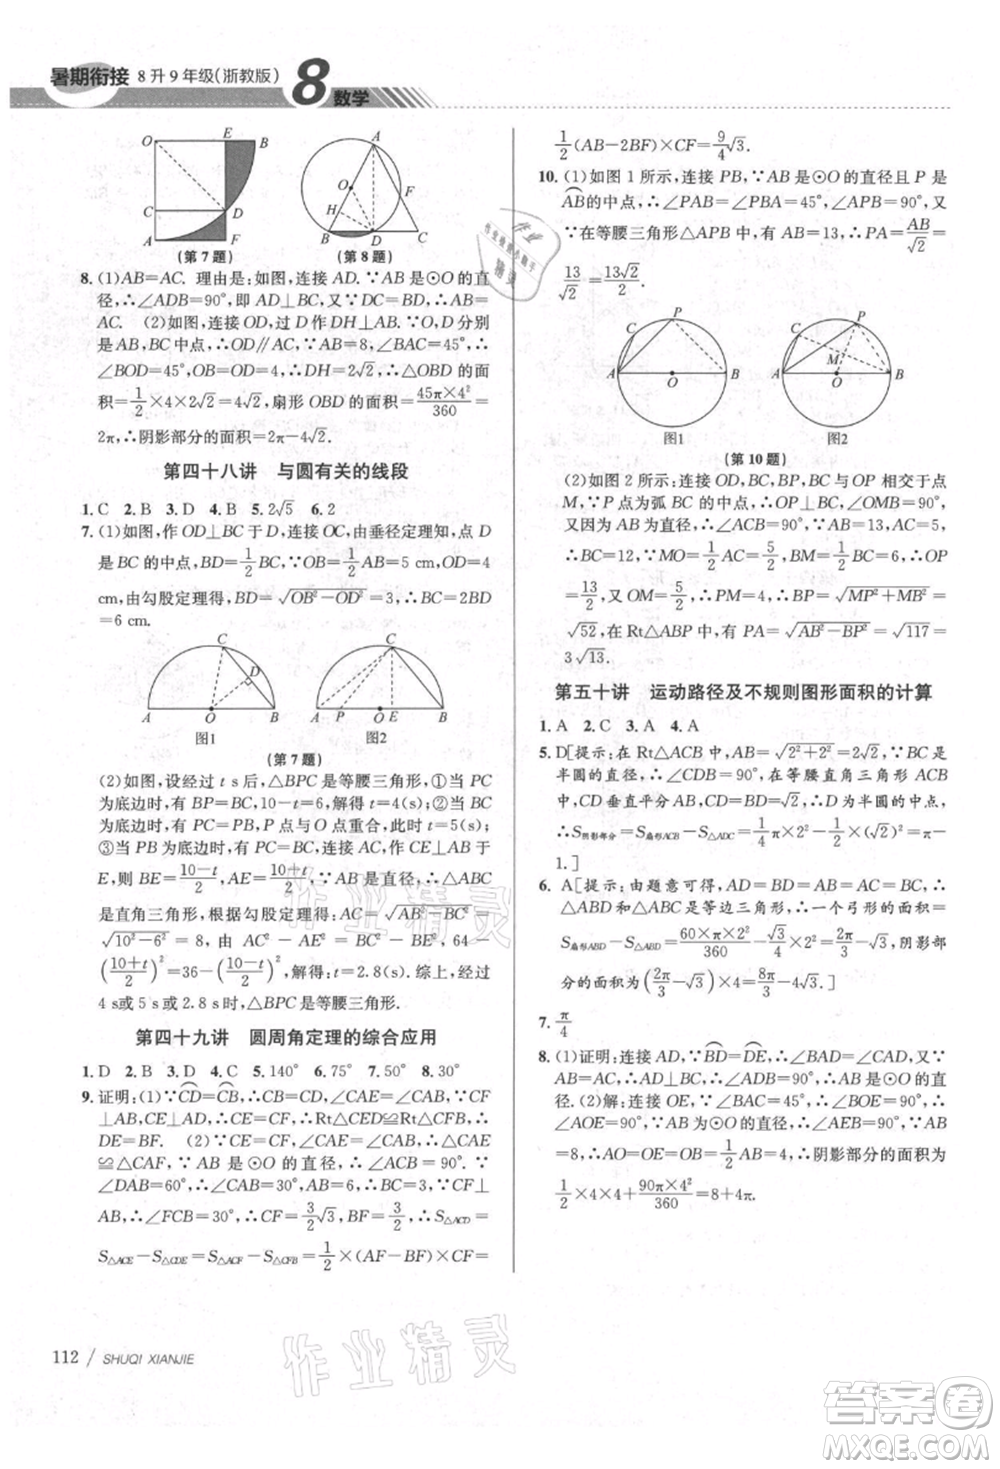 暑期衔接 8升9年级(浙教版) 8 数学
O E B
C D
A F
(第7题)
A
O F
H
B D C
(第8题)
8. (1)AB=AC. 理由是:如图,连接 AD. ∵AB 是⊙O 的直
径,∴∠ADB=90°,即 AD⊥BC. 又∵BD=DC,∴AB=
AC. (2)如图,连接 OD,过 D 作 DH⊥AB. ∵O,D 分别
是 AB,BC 的中点,∴OD∥AC,∵AB=8,∠BAC=45°,
∴∠BOD=45°,OB=OD=4,∴DH=2√2,∴△OBD 的面
积=1/2×4×2√2=4√2,扇形 OBD 的面积=45π×4²/360=
2π,∴阴影部分的面积=2π-4√2.
第四十八讲 与圆有关的线段
1. C 2. B 3. D 4. B 5. 2√5 6. 2
7. (1)如图,作 OD⊥BC 于 D,连接 OC,由垂径定理知,点 D
是 BC 的中点,BD=1/2BC,∵OB=1/2AB=5 cm,OD=4
cm,由勾股定理得,BD=√(OB²-OD²)=3 cm,∴BC=2BD
=6 cm.
C
D
A O B
图1
C
A P O E B
图2
(第7题)
(2)如图,设经过 t s后,△BPC 是等腰三角形,①当 PC
为底边时,有 BP=BC,10-t=6,解得 t=4(s);②当 BC
为底边时,有 PC=PB,P 点与 O 点重合,此时 t=5(s);
③当 PB 为底边时,有 PC=BC,连接 AC,作 CE⊥AB 于
E,则 BE=(10-t)/2,AE=(10+t)/2,∵AB 为直径,∴△ABC
是直角三角形,根据勾股定理得 AC=√(AB²-BC²)=
√(10²-6²)=8(cm),∵AC²-AE²=BC²-BE²,64-
((10+t)/2)²=36-((10-t)/2)²,解得:t=2.8(s).综上,经过
4 s或 5 s或 2.8 s时,△BPC 是等腰三角形.
第四十九讲 圆周角定理的综合应用
1. D 2. B 3. D 4. C 5. 140° 6. 75° 7. 50° 8. 30°
9. 证明:(1)∵CD=CB,∴CD=CB,∠CAE=∠CAB,∵CF
⊥AB,CE⊥AD,∴CE=CF,∴Rt△CED≌Rt△CFB,∴
DE=BF. (2)∵CE=CF,∠CAE=∠CAB,∴△CAE
≌△CAF,∵AB 是⊙O 的直径,∴∠ACB=90°.∵
∠DAB=60°,∴∠CAB=30°,AB=6,∴BC=3.∵CF⊥
AB,∴∠FCB=30°,∴CF=3/2√3,BF=3/2,∴S△ACD=
S△ACE-S△CDE=S△ACF-S△CFB=1/2×(AF-BF)×CF=
112 / SHUQI XIANJIE
1/2(AB-2BF)×CF=9/4√3.
10. (1)如图 1 所示,连接 PB,∵AB 是⊙O 的直径且 P 是
AB的中点,∴∠PAB=∠PBA=45°,∠APB=90°,又
∵在等腰三角形△APB 中,有 AB=13,∴PA=AB/√2=
13/√2=13√2/2.
C P
A O B
图1
C P
M
A O B
图2
(第10题)
(2)如图 2 所示:连接 OD,BC,BP,BC 与 OP 相交于点
M,∵P 点为弧 BC 的中点,∴OP⊥BC,∠OMB=90°,
又因为 AB 为直径,∴∠ACB=90°,∵AB=13,AC=5,
∴BC=12,∵MO=1/2AC=5/2,BM=1/2BC=6,∴OP
=13/2,又 OM=1/2AC=5/2,∴MP=4,∴BP=√(MP²+BM²)=
√52,在 Rt△ABP 中,有 PA=√(AB²-BP²)=√117=
3√13.
第五十讲 运动路径及不规则图形面积的计算
1. A 2. C 3. A 4. A
5. D[提示:在 Rt△ACB 中,AB=√(2²+2²)=2√2,∵BC 是
半圆的直径,∴∠CDB=90°,在等腰三角形 ACB
中,CD 垂直平分 AB,CD=BD=√2,D 为半圆的中点,
∴S阴影部分=S扇形ACB-S△ADC=1/4π×2²-1/2×(√2)²=π-
1.]
6. A[提示:由题意可得,AD=BD=AB=AC=BC=2,∴
△ABD 和△ABC 是等边三角形,∴一个弓形的面积=
S扇形ABD-S△ABD=60×π×2²/360-√3/4×2²=2π/3-√3,阴影部
分的面积为(2π/3-√3)×4=8π/3-4√3.]
7. π/4
8. (1)证明:连接 AD,∵BD=DE,∴∠BAD=∠CAD,又
∵AB 是⊙O 的直径,∴∠ADB=90°,∴∠B=∠C,∴AB
=AC.(2)解:连接 OE,∵∠BAC=45°,∴∠BOE=90°,
∴∠AOE=90°,∵AB 为⊙O的直径,∴∠AEB=90°,∵AB
=8,∴AO=OE=OB=1/2AB=4,∴阴影部分的面积为
1/2×4×4+90π×4²/360=8+4π.
作业精灵
作业精灵
答案卷
MXQE.COM